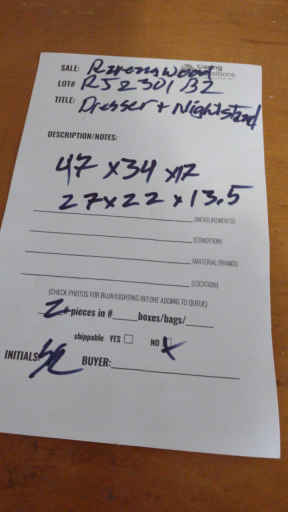 SALE: Ravenswood
LOT# R52301 B2
TITLE: Dresser + Nightstand
DESCRIPTION/NOTES:
47 x 34 x 17
27 x 22 x 13.5
(MEASUREMENTS)
(CONDITION)
(MATERIAL/BRAND)
(LOCATION)
(CHECK PHOTOS FOR BLUR/LIGHTING BEFORE ADDING TO QUEUE)
2 # pieces in # ____ boxes/bags/____
shippable YES ☐ NO X
INITIALS BUYER: